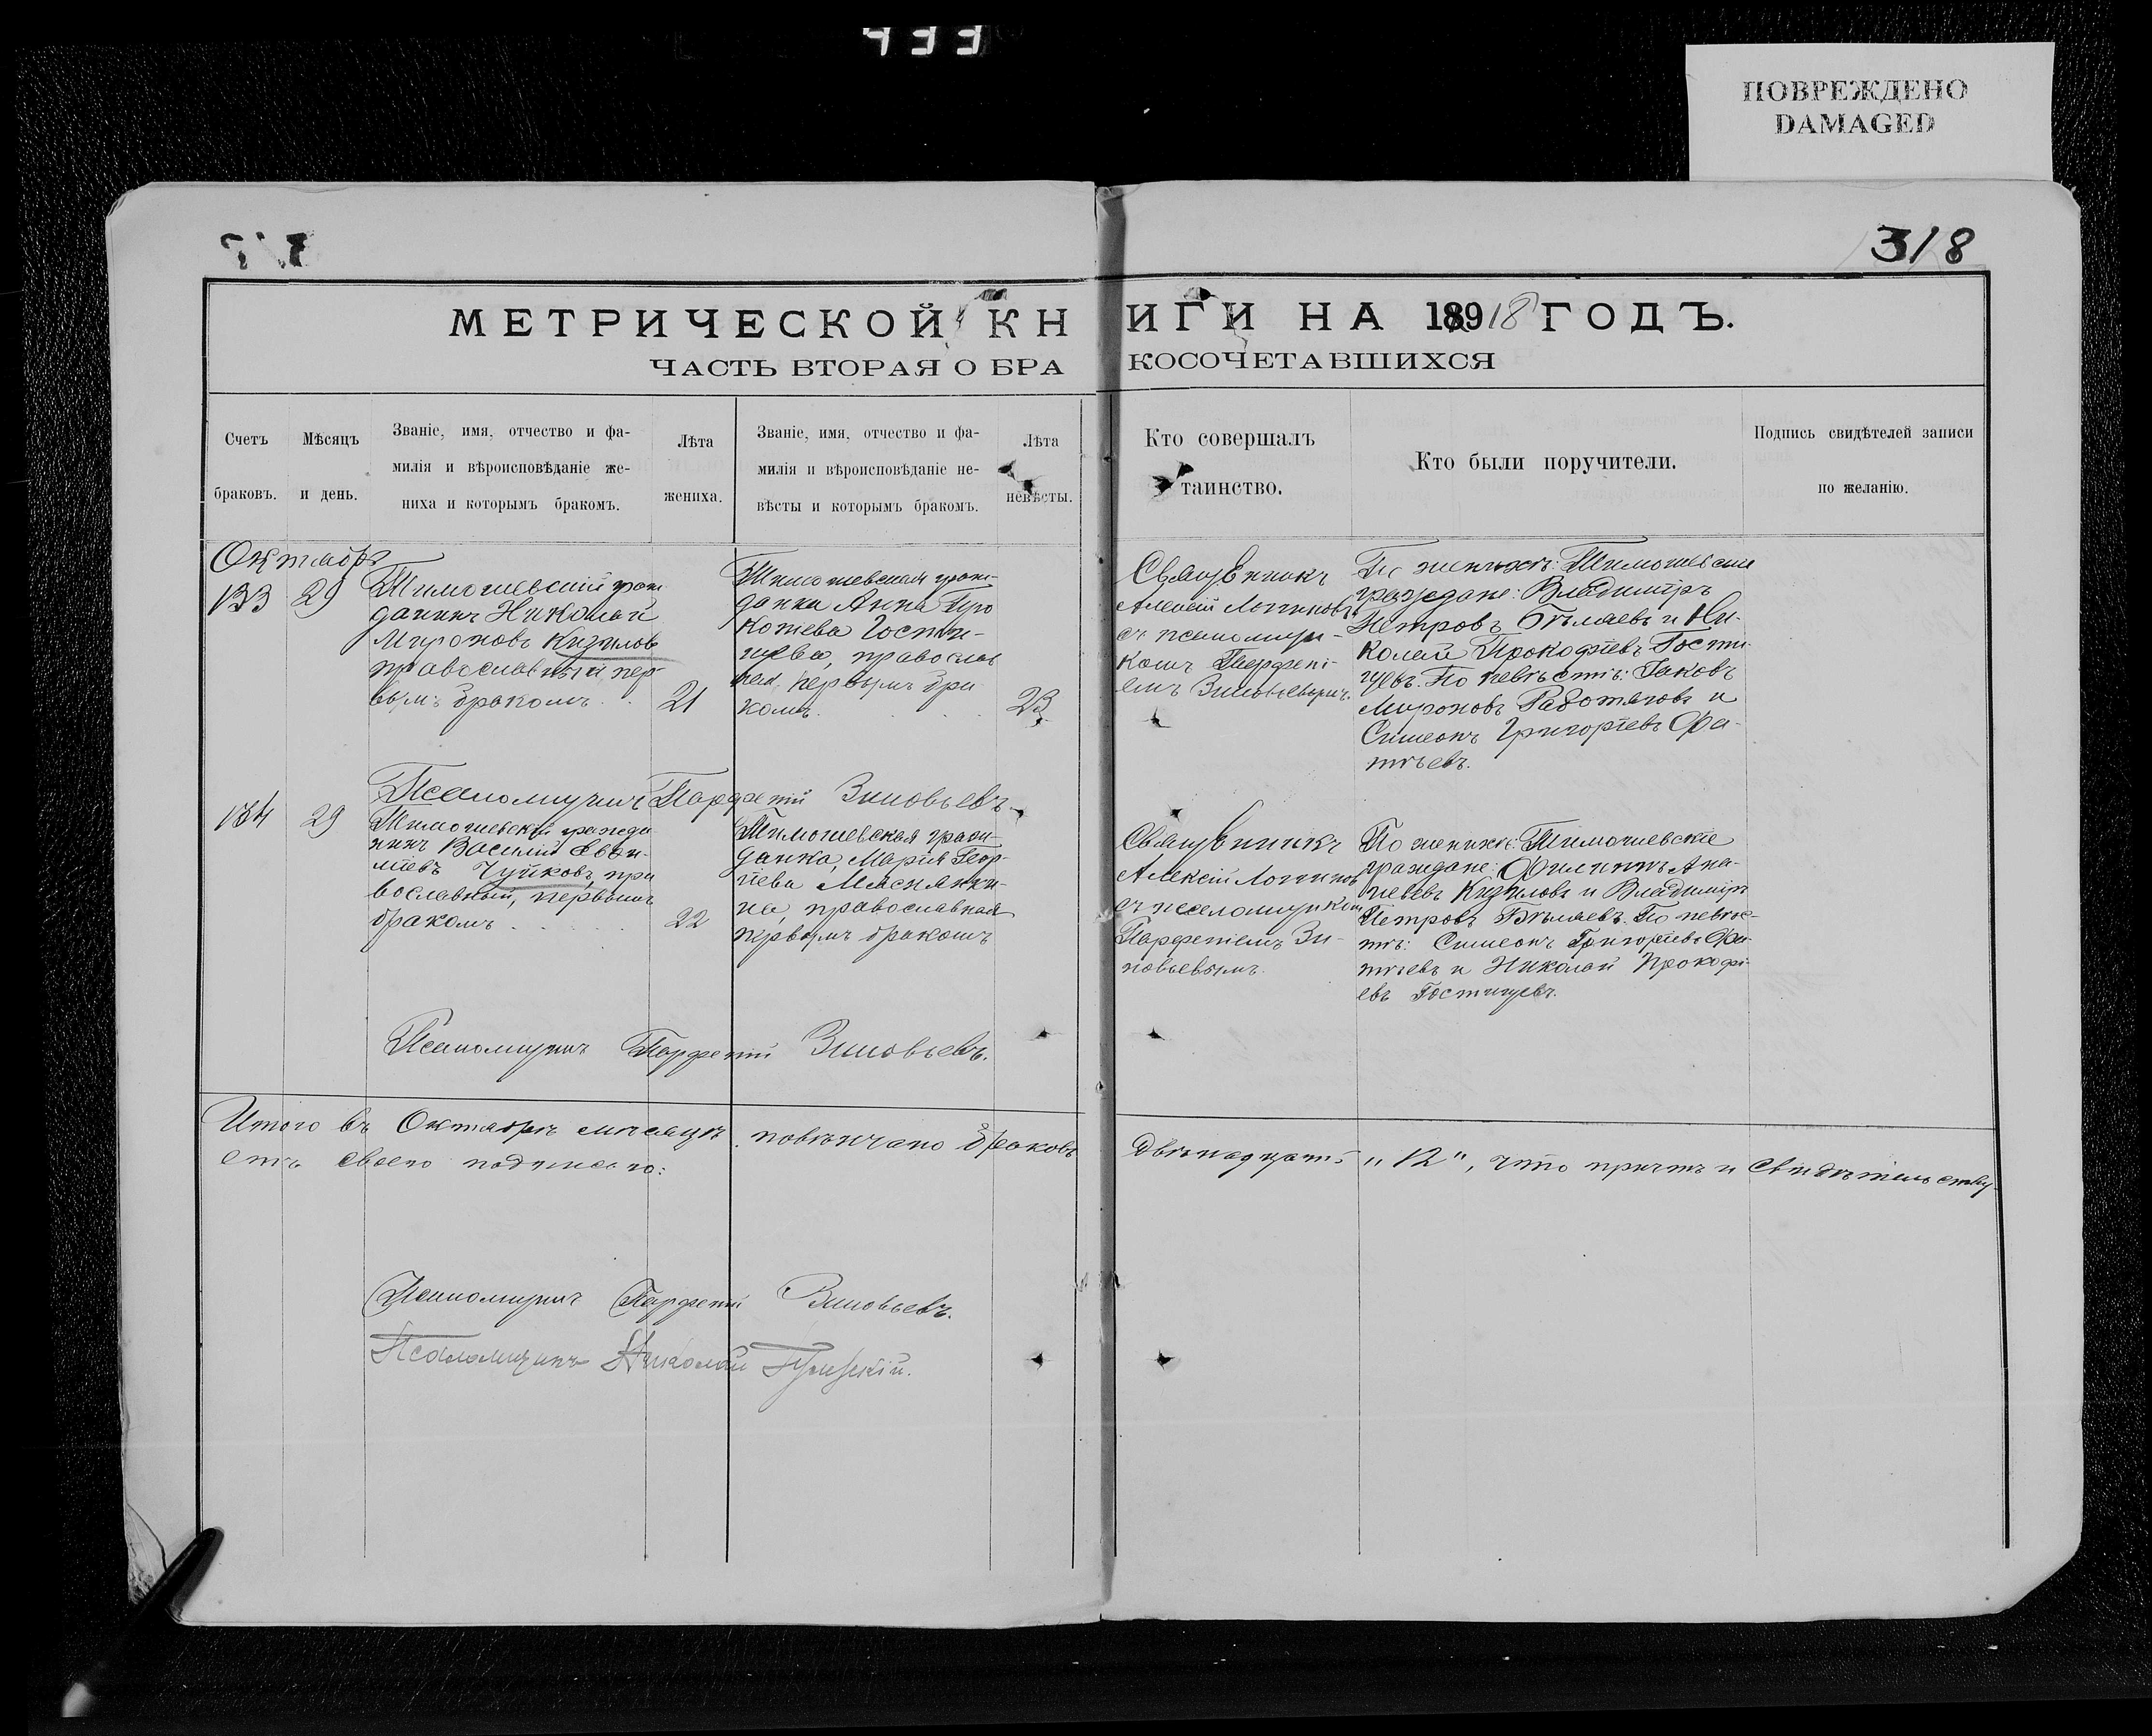 ПОВРЕЖДЕНО
DAMAGED
318
МЕТРИЧЕСКОЙ КНИГИ НА 1918 ГОДЪ.
ЧАСТЬ ВТОРАЯ О БРАКОСОЧЕТАВШИХСЯ
Счетъ браковъ.
Мѣсяцъ и день.
Званіе, имя, отчество и фа-
милія и вѣроисповѣданіе же-
ниха и которымъ бракомъ.
Лѣта жениха.
Званіе, имя, отчество и фа-
милія и вѣроисповѣданіе не-
вѣсты и которымъ бракомъ.
Лѣта невѣсты.
Кто совершалъ
таинство.
Кто были поручители.
Подпись свидѣтелей записи
по желанію.
Октябрь
133
29
Тимошевскій граж
данинъ Николай
Мироновъ Кизиловъ
православный пер
вымъ бракомъ
21
Тимошевская граж-
данка Анна Про
копіева Гости-
щева, православ
ная, первымъ бра
комъ
23
Священникъ
Алексій Логиновъ
съ псаломщи-
комъ Парфені-
емъ Зиновьевымъ.
По женихѣ: Тимошевские
граждане: Владиміръ
Петровъ Бѣляевъ и Ни-
колай Прокофіевъ Гости-
щевъ. По невѣстѣ: Іаковъ
Мироновъ Работяговъ и
Симеонъ Григоріевъ Фа-
тѣевъ.
Псаломщикъ Парфеній Зиновьевъ
134
29
Тимошевскій гражда
нинъ Василій Евѳи-
міевъ Чуйковъ, пра
вославный, первымъ
бракомъ
22
Тимошевская граж-
данка, Марія Геор-
гіева Маслянки-
на, православная
первымъ бракомъ
Священникъ
Алексій Логиновъ
съ псаломщикомъ
Парфеніемъ Зи-
новьевымъ.
По женихѣ: Тимошевскіе
граждане: Филиппъ Ана-
ньевъ Кизиловъ и Владиміръ
Петровъ Бѣляевъ. По невѣс-
тѣ: Симеонъ Григоріевъ Фа-
тѣевъ и Николай Прокофі-
евъ Гостищевъ.
Псаломщикъ Парфеній Зиновьевъ.
Итого въ Октябрѣ мѣсяцѣ повѣнчано браковъ двѣнадцать „12", что причтъ и свидѣтельству-
етъ своею подписью:
Псаломщикъ Парфеній Зиновьевъ.
Псаломщикъ Николай